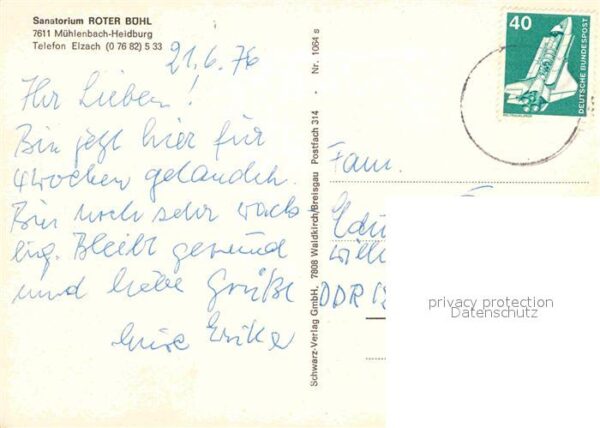 Sanatorium ROTER BÜHL
7611 Mühlenbach-Heidburg
Telefon Elzach (0 76 82) 5 33
21.6.76
Ihr Lieben!
Bin jetzt hier für
4 Wochen gelandet.
Bin noch sehr wack
lig. Bleibt gesund
und liebe Grüße
Eure Erika
Schwarz-Verlag GmbH, 7808 Waldkirch/Breisgau Postfach 314 - Nr. 1064 s
40
DEUTSCHE BUNDESPOST
Fam.
DDR
privacy protection
Datenschutz